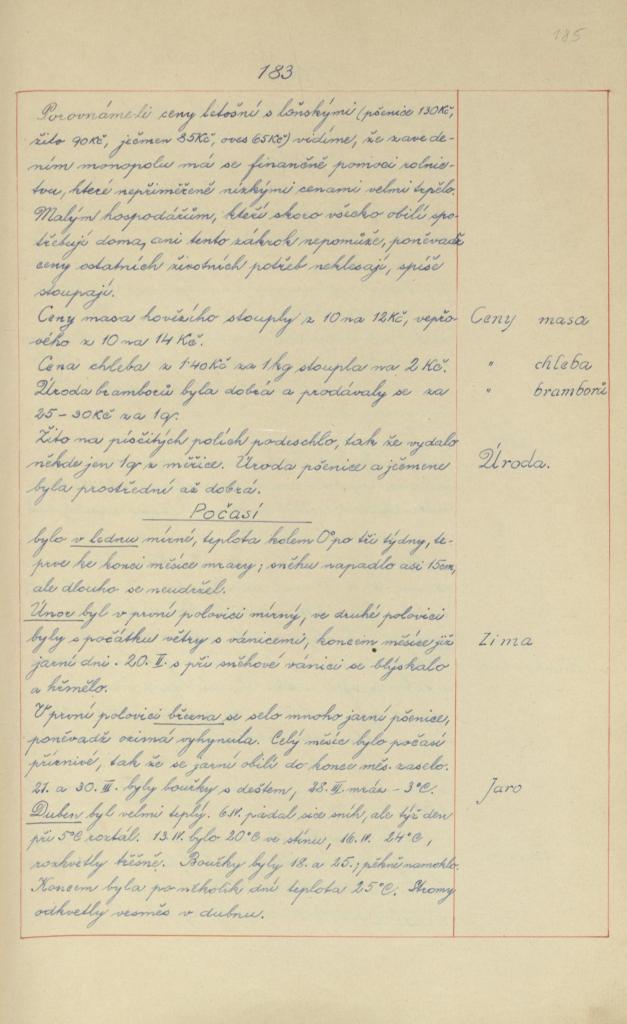 185
183
Porovnáme-li ceny letošní s loňskými (pšenice 130Kč,
žito 90Kč, ječmen 85Kč, oves 65Kč) vidíme, že zavede-
ním monopolu má se finančně pomoci rolnic-
tvu, které nepřiměřeně nízkými cenami velmi trpělo.
Malým hospodářům, kteří skoro všecko obilí spo-
třebují doma, ani tento zákrok nepomůže, poněvadž
ceny ostatních životních potřeb neklesají, spíše
stoupají.
Ceny masa hovězího stouply z 10 na 12Kč, vepřo-
vého z 10 na 14 Kč.
Ceny masa
Cena chleba z 1·40Kč za 1 kg stoupla na 2 Kč.
" chleba
Úroda bramborů byla dobrá a prodávaly se za
" bramborů
25-30Kč za 1q.
Žito na písčitých polích podeschlo, tak že vydalo
někde jen 1q z měřice. Úroda pšenice a ječmene
Úroda.
byla prostřední až dobrá.
Počasí
bylo v lednu mírné, teplota kolem 0° po tři týdny, te-
prve ke konci měsíce mrazy; sněhu napadlo asi 15cm,
ale dlouho se neudržel.
Únor byl v první polovici mírný, ve druhé polovici
byly s počátku větry s vánicemi, koncem měsíce již
Zima
jarní dni. 20. II. s při sněhové vánici se blýskalo
a hřmělo.
V první polovici března se selo mnoho jarní pšenice,
poněvadž ozimá vyhynula. Celý měsíc bylo počasí
příznivé, tak že se jarní obilí do konce měs. zaselo.
21. a 30. III. byly bouřky s deštěm, 28. III. mráz - 3°C.
Jaro
Duben byl velmi teplý. 6.IV. padal sice sníh, ale týž den
při 5°C roztál. 13. IV. bylo 20°C ve stínu, 16. IV. 24°C,
rozkvetly třešně. Bouřky byly 18. a 25.; pěkně namoklo.
Koncem byla po několik dní teplota 25°C. Stromy
odkvetly vesměs v dubnu.